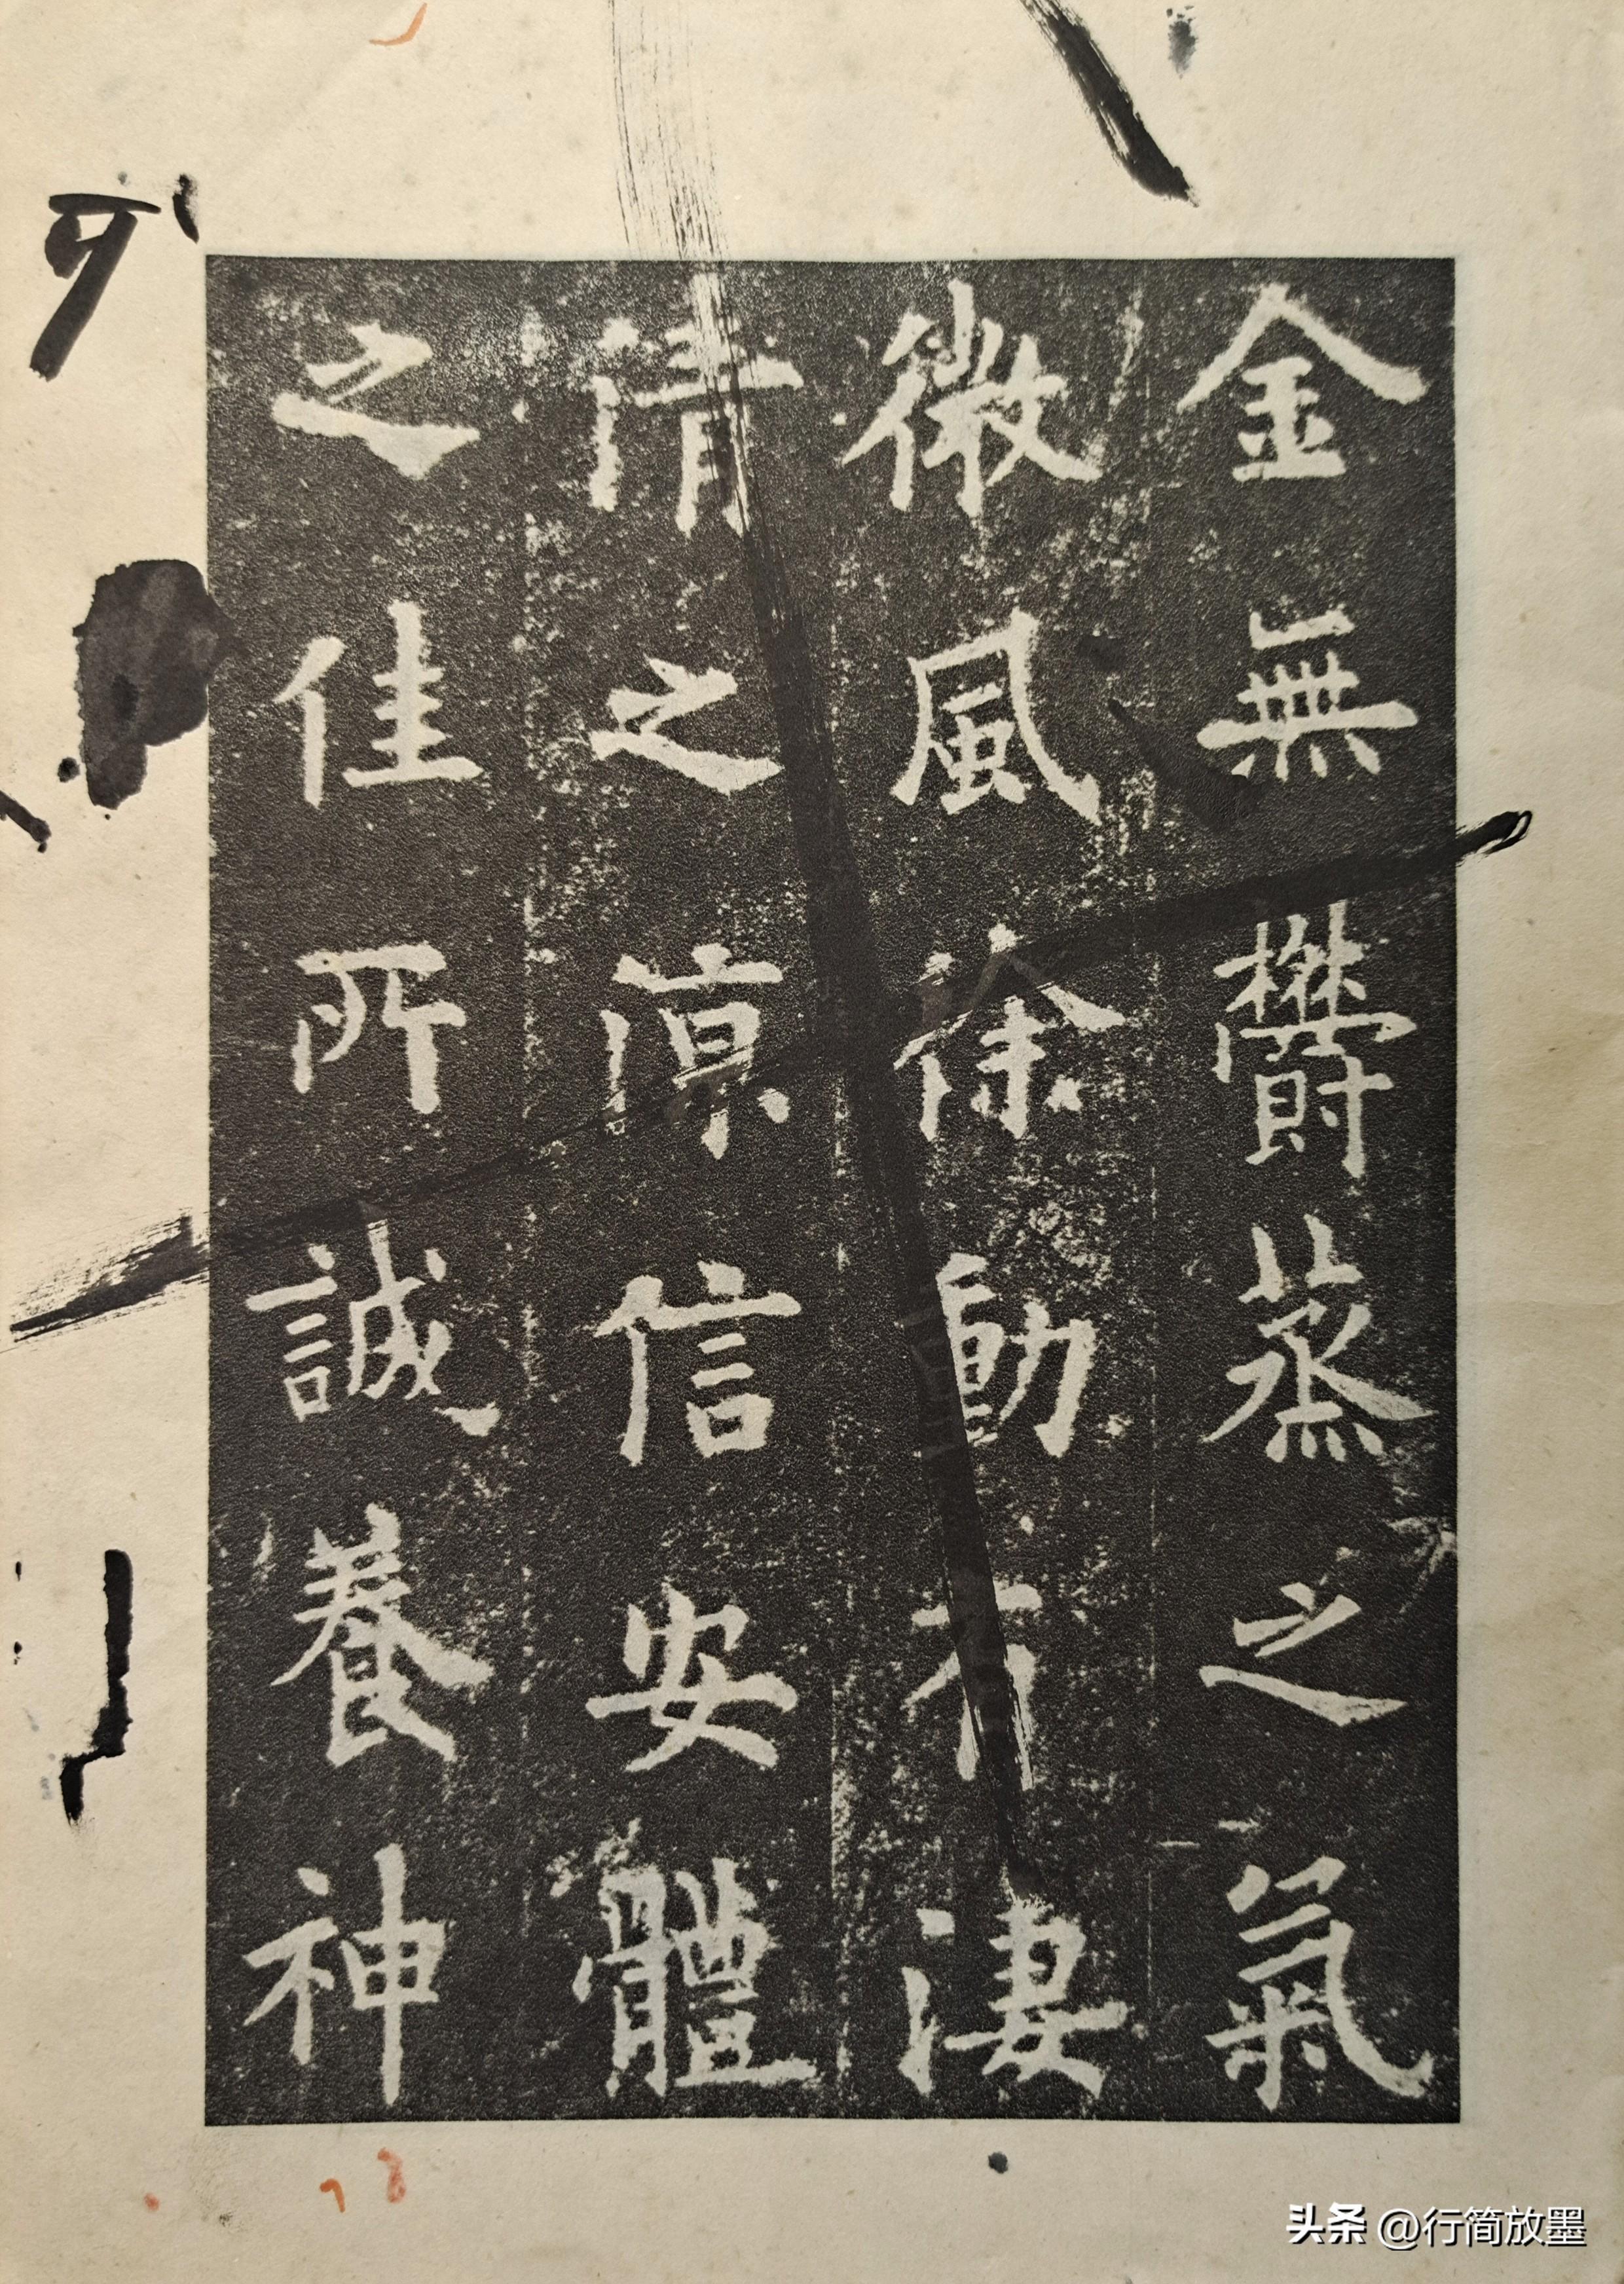 金無欝蒸之氣
微風徐動有淒
清之涼信安體
之佳所誠養神
头条 @行简放墨